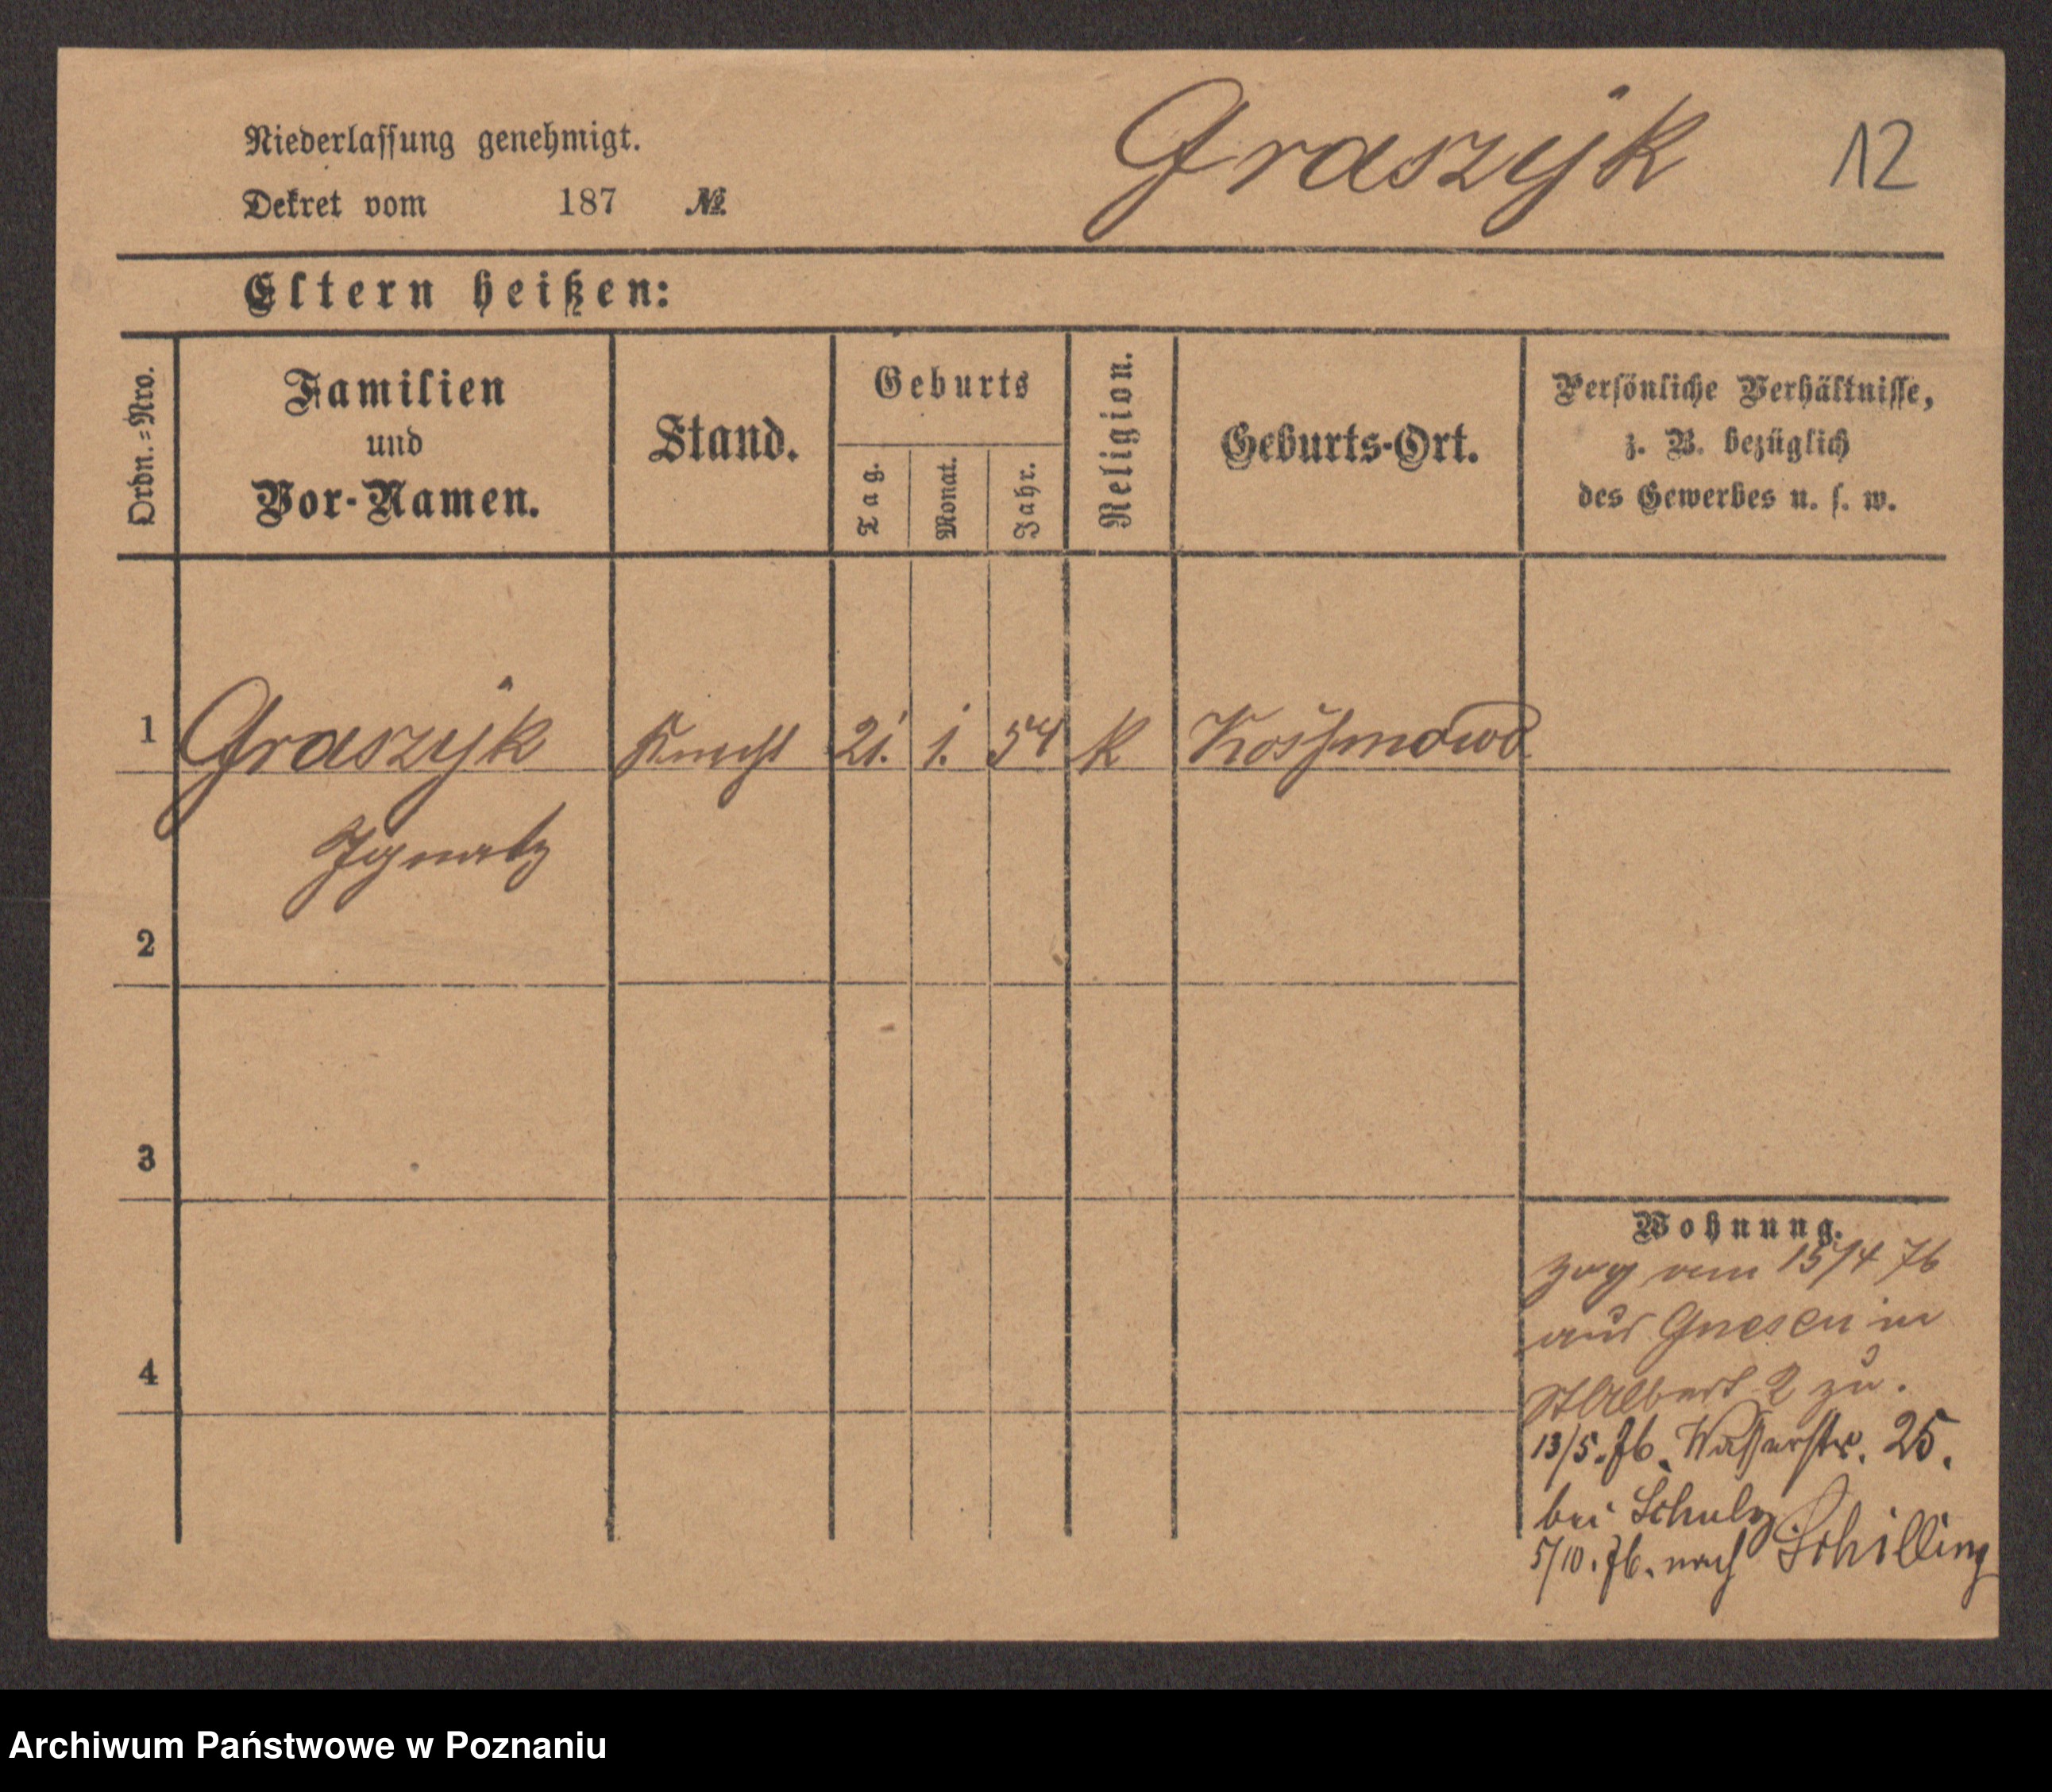 Niederlassung genehmigt.
Dekret vom 187 №
Graszyk 12
Eltern heißen:
Ordn.=Nro.
Familien
und
Vor-Namen.
Stand.
Geburts
Tag.
Monat.
Jahr.
Religion.
Geburts-Ort.
Persönliche Verhältnisse,
z. B. bezüglich
des Gewerbes u. s. w.
1 Graszyk Knecht 21. 1. 54 K
Ignatz
2
3
4
Wohnung.
zog am 15/4 76
aus Gnesen in
St Albert 2 zu.
13/5. 76. Wasserstr. 25.
bei Schulz
5/10. 76. nach Schilling
Archiwum Państwowe w Poznaniu